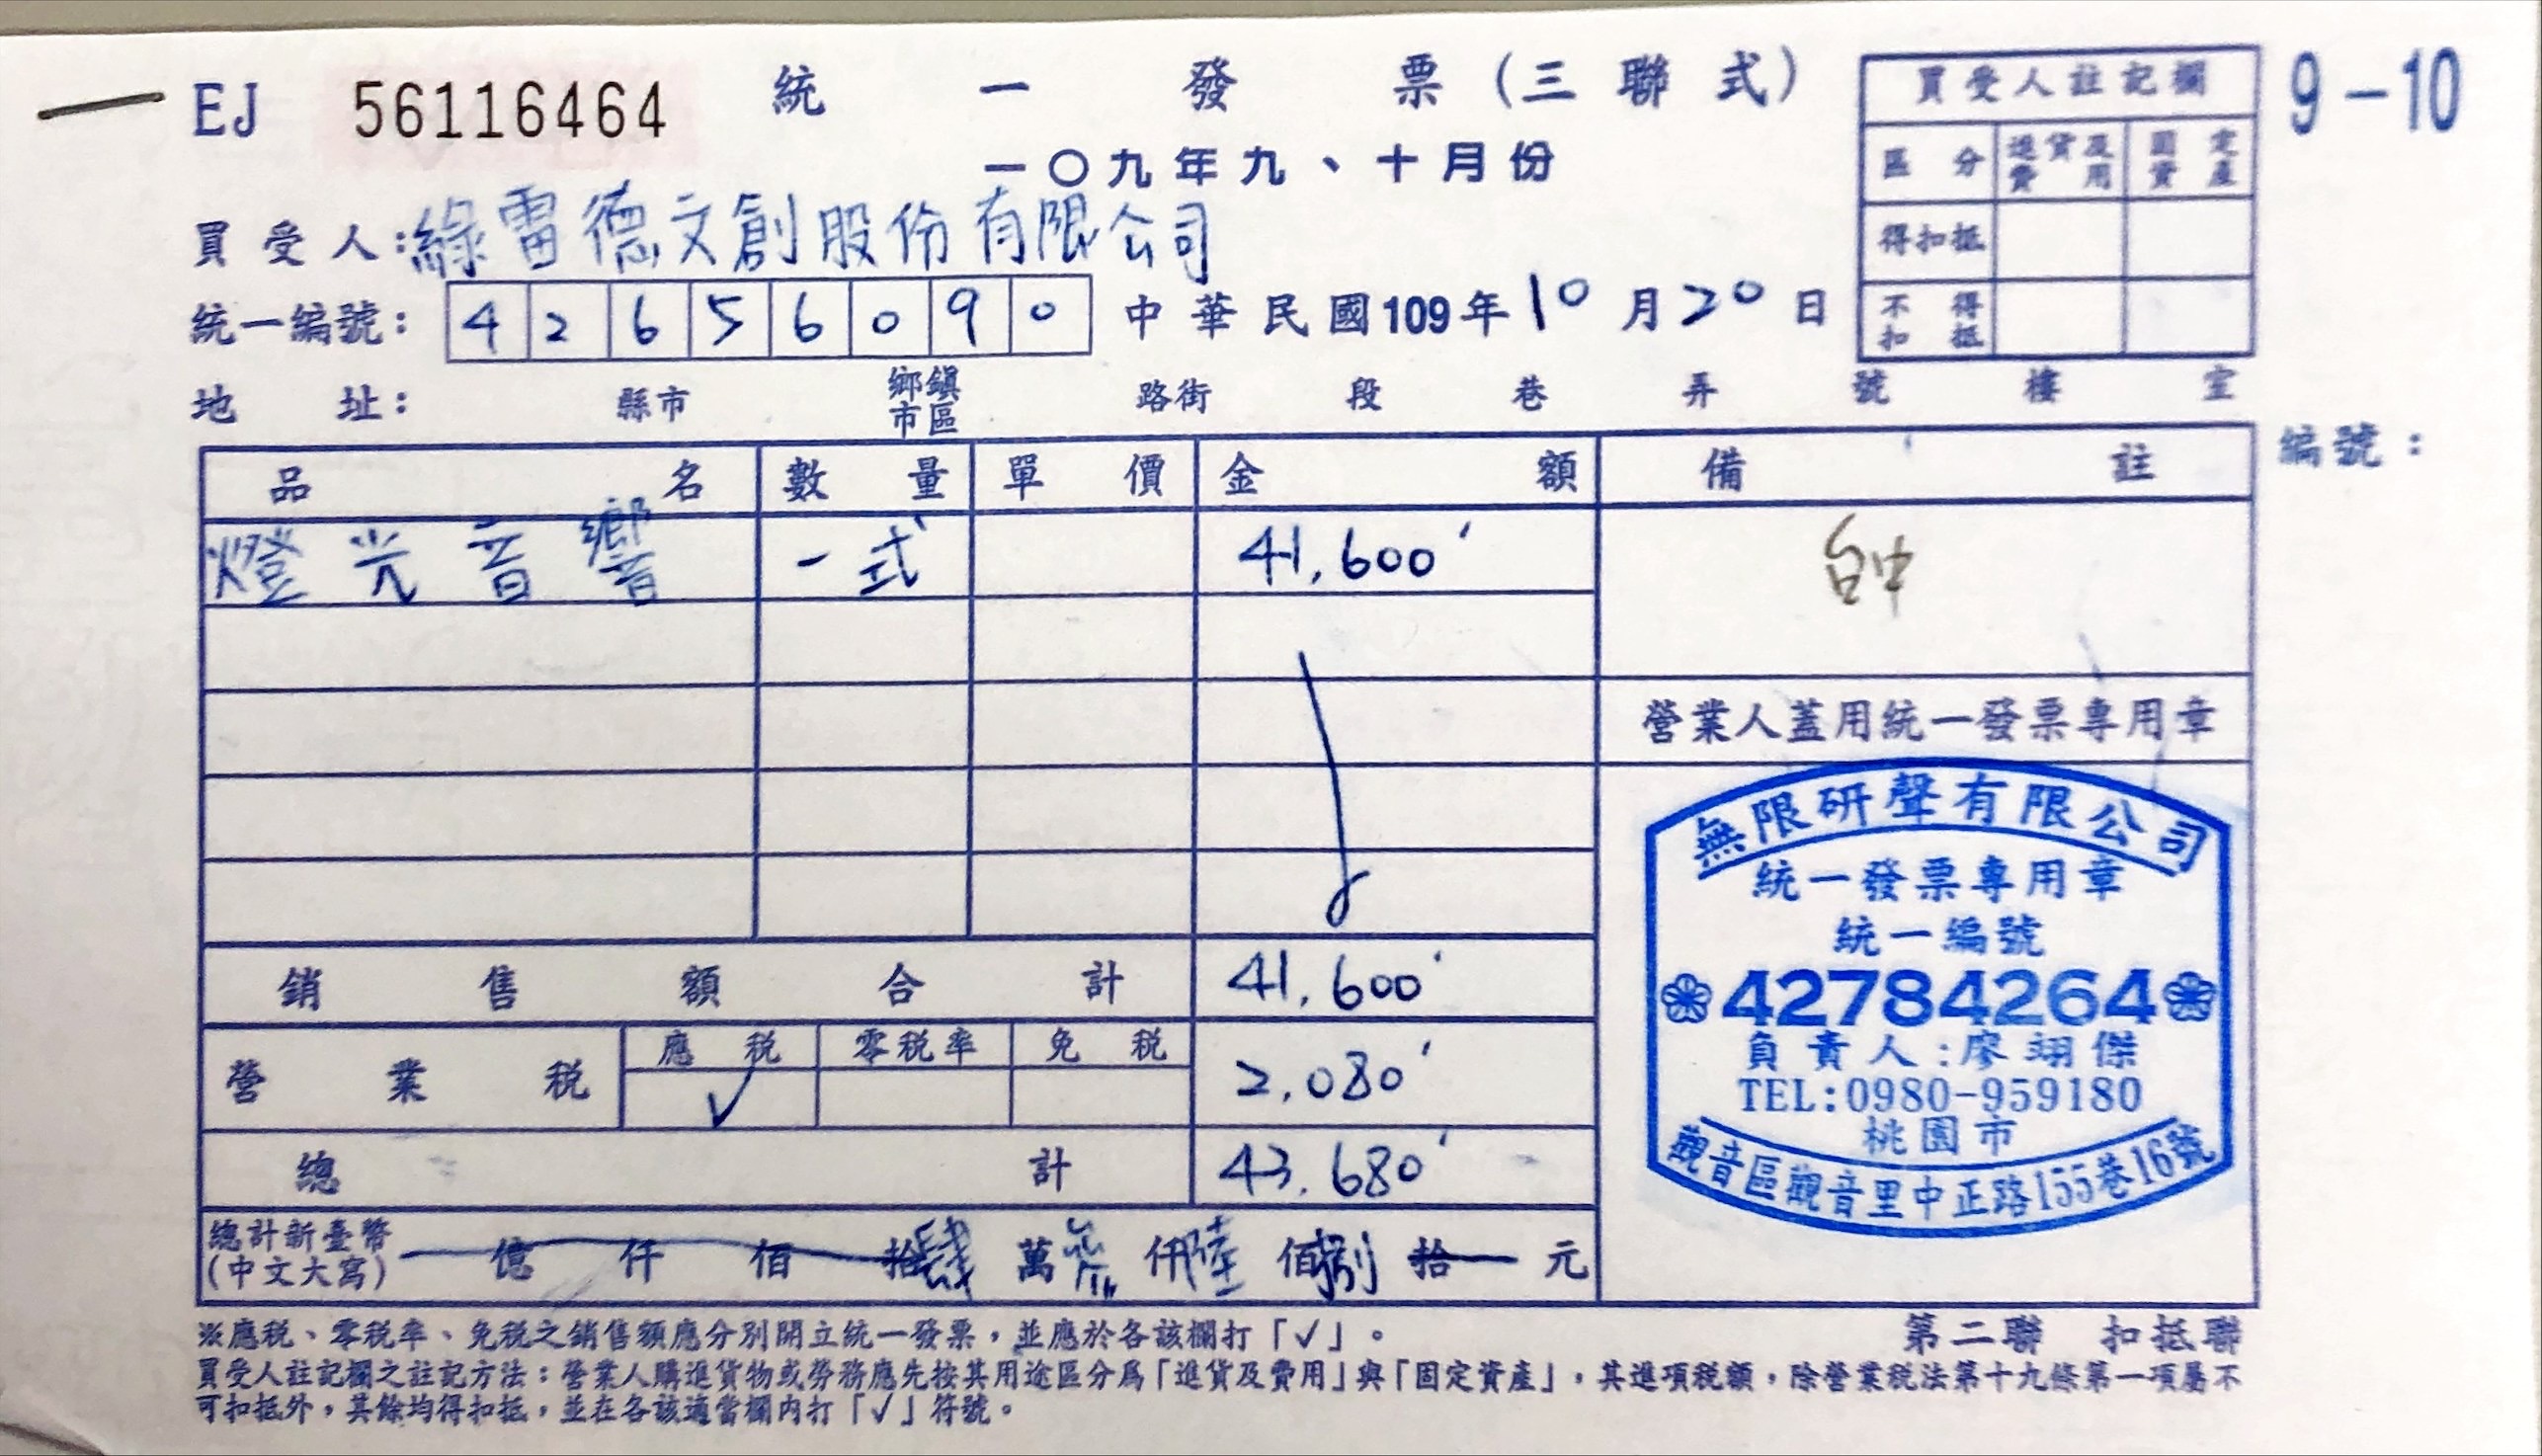 EJ 56116464 統一發票(三聯式) 9-10
一〇九年九、十月份
買受人:綠雷德文創股份有限公司
統一編號: 42656090 中華民國109年10月20日
地址: 縣市 鄉鎮市區 路街 段 巷 弄 號 樓 室
買受人註記欄
區分 進貨及費用 固定資產
得扣抵
不得扣抵
編號:
品名 數量 單價 金額 備註
燈光音響 一式 41,600 台中
營業人蓋用統一發票專用章
銷售額合計 41,600
營業稅 應稅 零稅率 免稅 2,080
✓
總計 43,680
總計新臺幣(中文大寫) 億 仟 佰 拾肆萬參仟陸佰捌拾 元
無限研聲有限公司
統一發票專用章
統一編號
42784264
負責人:廖翊傑
TEL:0980-959180
桃園市
觀音區觀音里中正路155巷16號
※應稅、零稅率、免稅之銷售額應分別開立統一發票,並應於各該欄打「✓」。
第二聯 扣抵聯
買受人註記欄之註記方法:營業人購進貨物或勞務應先按其用途區分為「進貨及費用」與「固定資產」,其進項稅額,除營業稅法第十九條第一項屬不
可扣抵外,其餘均得扣抵,並在各該適當欄內打「✓」符號。